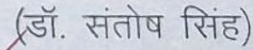 (डॉ. संतोष सिंह)